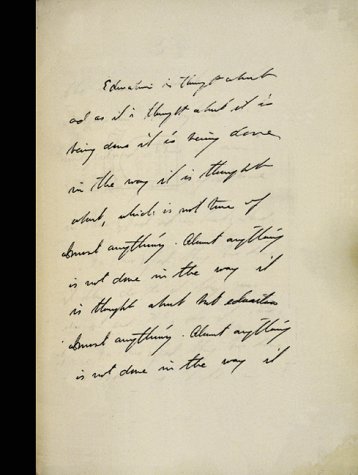 Education is thought about
and as it is thought about it is
being done it is being done
in the way it is thought
about, which is not true of
almost anything. Almost anything
is not done in the way it
is thought about but education
almost anything. Almost anything
is not done in the way it